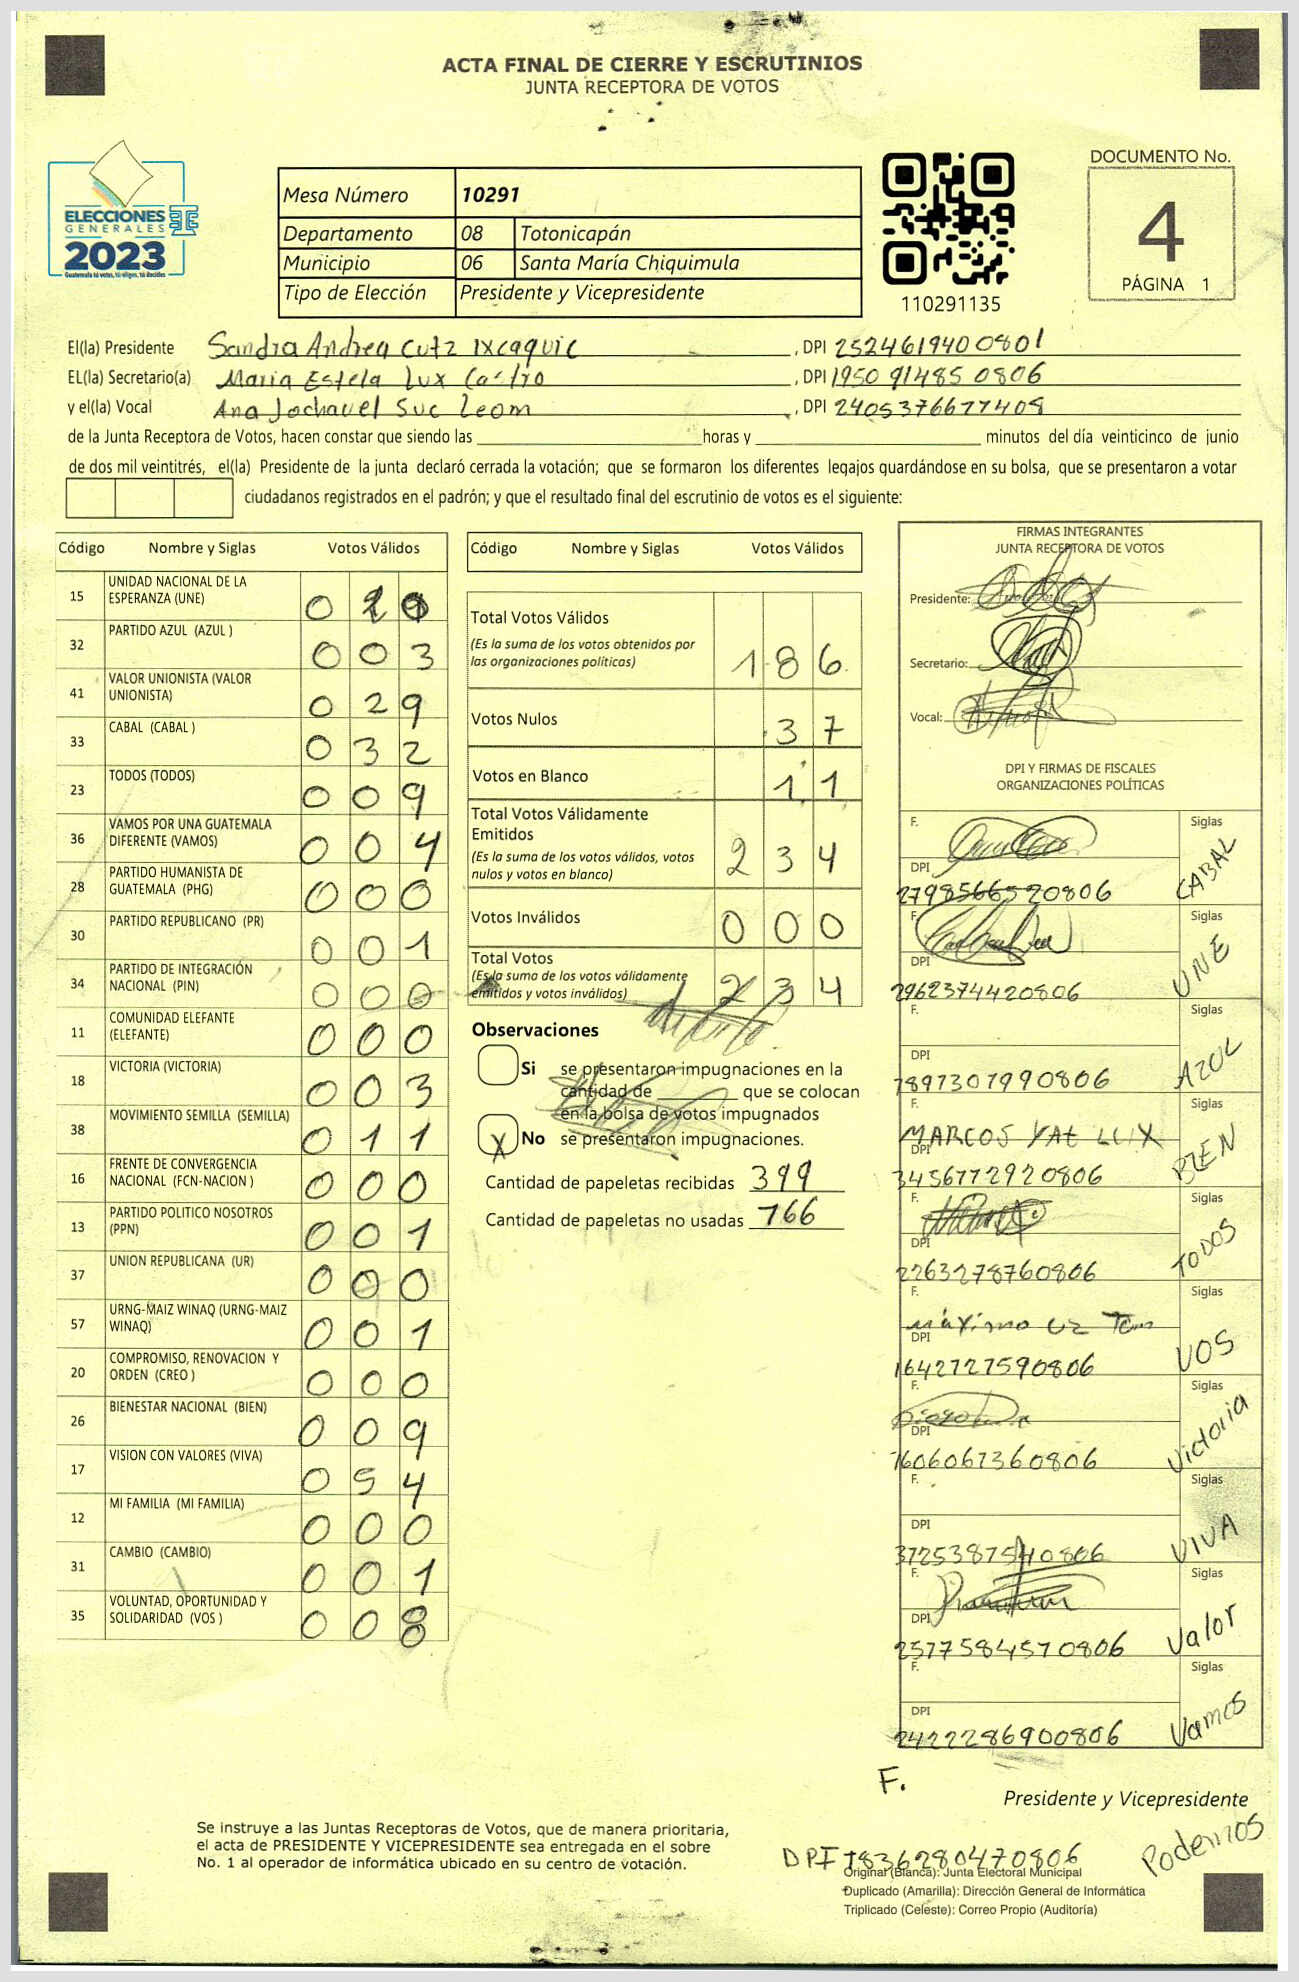 ACTA FINAL DE CIERRE Y ESCRUTINIOS
JUNTA RECEPTORA DE VOTOS
ELECCIONES
GENERALES
2023
Guatemala tú votas, tú eliges, tú decides
Mesa Número 10291
Departamento 08 Totonicapán
Municipio 06 Santa María Chiquimula
Tipo de Elección Presidente y Vicepresidente
110291135
DOCUMENTO No.
4
PÁGINA 1
El(la) Presidente Sandra Andrea Cutz Ixcaquic, DPI 2524619400801
EL(la) Secretario(a) Maria Estela Lux Castro, DPI 1950 91485 0806
y el(la) Vocal Ana Jochavel Suc Leom, DPI 2405376677408
de la Junta Receptora de Votos, hacen constar que siendo las horas y minutos del día veinticinco de junio
de dos mil veintitrés, el(la) Presidente de la junta declaró cerrada la votación; que se formaron los diferentes legajos guardándose en su bolsa, que se presentaron a votar
ciudadanos registrados en el padrón; y que el resultado final del escrutinio de votos es el siguiente:
Código Nombre y Siglas Votos Válidos
15 UNIDAD NACIONAL DE LA ESPERANZA (UNE) 0 2 0
32 PARTIDO AZUL (AZUL ) 0 0 3
41 VALOR UNIONISTA (VALOR UNIONISTA) 0 2 9
33 CABAL (CABAL ) 0 3 2
23 TODOS (TODOS) 0 0 9
36 VAMOS POR UNA GUATEMALA DIFERENTE (VAMOS) 0 0 4
28 PARTIDO HUMANISTA DE GUATEMALA (PHG) 0 0 0
30 PARTIDO REPUBLICANO (PR) 0 0 1
34 PARTIDO DE INTEGRACIÓN NACIONAL (PIN) 0 0 0
11 COMUNIDAD ELEFANTE (ELEFANTE) 0 0 0
18 VICTORIA (VICTORIA) 0 0 3
38 MOVIMIENTO SEMILLA (SEMILLA) 0 1 1
16 FRENTE DE CONVERGENCIA NACIONAL (FCN-NACION ) 0 0 0
13 PARTIDO POLITICO NOSOTROS (PPN) 0 0 1
37 UNION REPUBLICANA (UR) 0 0 0
57 URNG-MAIZ WINAQ (URNG-MAIZ WINAQ) 0 0 1
20 COMPROMISO, RENOVACION Y ORDEN (CREO ) 0 0 0
26 BIENESTAR NACIONAL (BIEN) 0 0 9
17 VISION CON VALORES (VIVA) 0 5 4
12 MI FAMILIA (MI FAMILIA) 0 0 0
31 CAMBIO (CAMBIO) 0 0 1
35 VOLUNTAD, OPORTUNIDAD Y SOLIDARIDAD (VOS ) 0 0 8
Código Nombre y Siglas Votos Válidos
Total Votos Válidos 1 8 6
(Es la suma de los votos obtenidos por
las organizaciones políticas)
Votos Nulos 3 7
Votos en Blanco 1 1
Total Votos Válidamente
Emitidos 2 3 4
(Es la suma de los votos válidos, votos
nulos y votos en blanco)
Votos Inválidos 0 0 0
Total Votos 2 3 4
(Es la suma de los votos válidamente
emitidos y votos inválidos)
Observaciones
Si se presentaron impugnaciones en la
cantidad de que se colocan
en la bolsa de votos impugnados
X No se presentaron impugnaciones.
Cantidad de papeletas recibidas 399
Cantidad de papeletas no usadas 166
FIRMAS INTEGRANTES
JUNTA RECEPTORA DE VOTOS
Presidente:
Secretario:
Vocal:
DPI Y FIRMAS DE FISCALES
ORGANIZACIONES POLÍTICAS
F. Siglas
DPI CABAL
2798566520806
F. Siglas
DPI UNE
2962374420806
F. Siglas
DPI AZUL
1897307990806
F. Siglas
MARCOS YAT LUX
DPI BIEN
3456772920806
F. Siglas
DPI TODOS
2263278760806
F. Siglas
Máximo Uz Tum
DPI VOS
1642727590806
F. Siglas
DPI Victoria
1606067360806
F. Siglas
DPI VIVA
3725387540806
F. Siglas
DPI Valor
2577584570806
F. Siglas
DPI Vamos
2422286900806
F.
Presidente y Vicepresidente
Podemos
DPI 1836280470806
Se instruye a las Juntas Receptoras de Votos, que de manera prioritaria,
el acta de PRESIDENTE Y VICEPRESIDENTE sea entregada en el sobre
No. 1 al operador de informática ubicado en su centro de votación.
Original (Blanca): Junta Electoral Municipal
Duplicado (Amarilla): Dirección General de Informática
Triplicado (Celeste): Correo Propio (Auditoría)